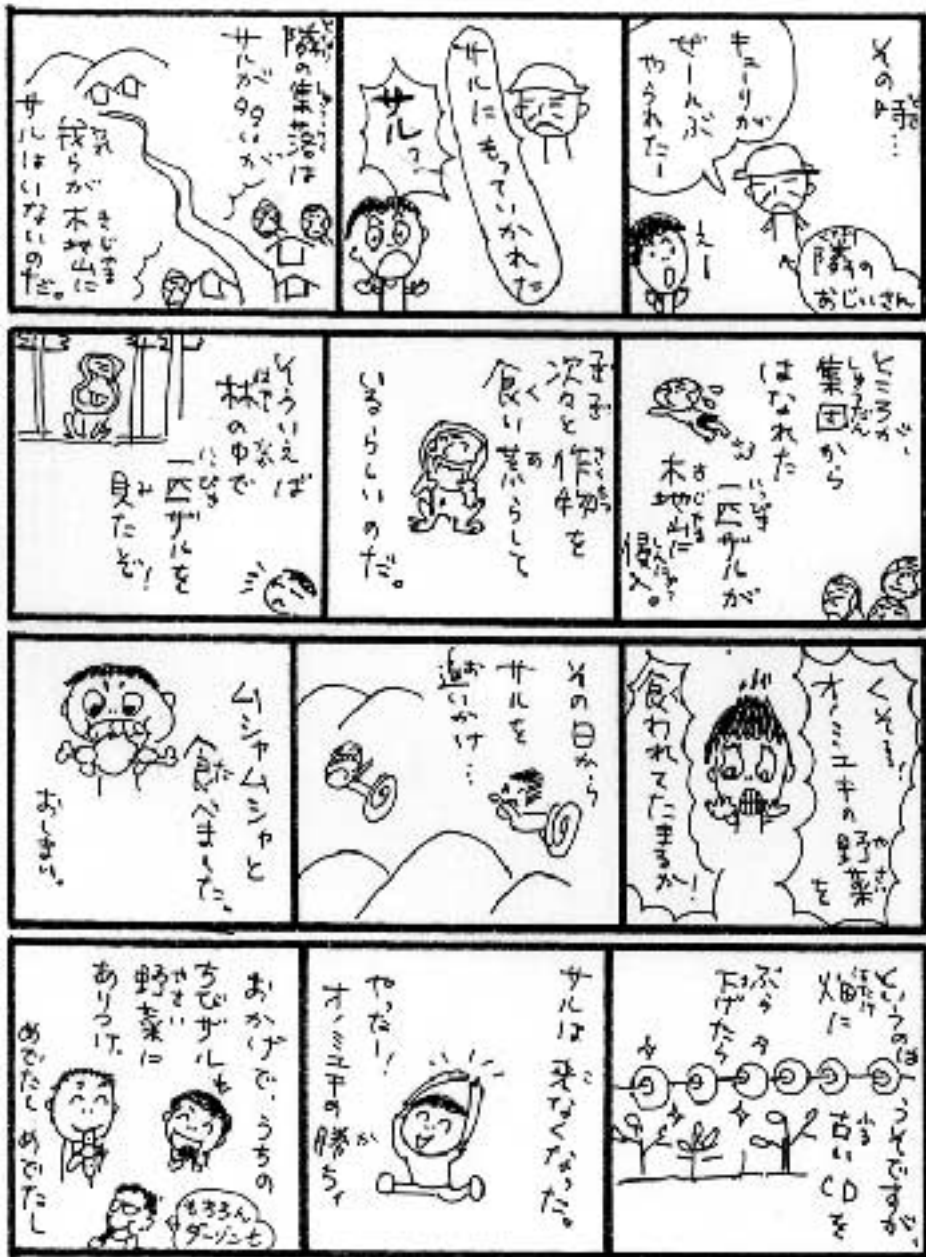 その時…
キューリが
ぜーんぶ
やられたー
えー
隣のおじいさん
サルにもっていかれた
サルっ!!
隣の集落は
サルが多いが
我らが木地山に
サルはいないのだ。
ところが、
集団から
はなれた
一匹ザルが
木地山に
侵入。
次々と作物を
食い荒らして
いるらしいのだ。
そういえば
林の中で
一匹ザルを
見たぞ!
くそー!
オノミユキの野菜を
食われてたまるか!
その日から
サルを
追いかけ…
ムシャムシャと
食べましーた。
おしまい。
というのはうそですが、
畑に古いCDを
ぶら下げたら
サルは来なくなった。
やったー!
オノミユキの勝ち!
おかげで、うちの
ちびザルも
野菜に
ありつけ、
めでたし めでたし
もちろん
ダーリンも